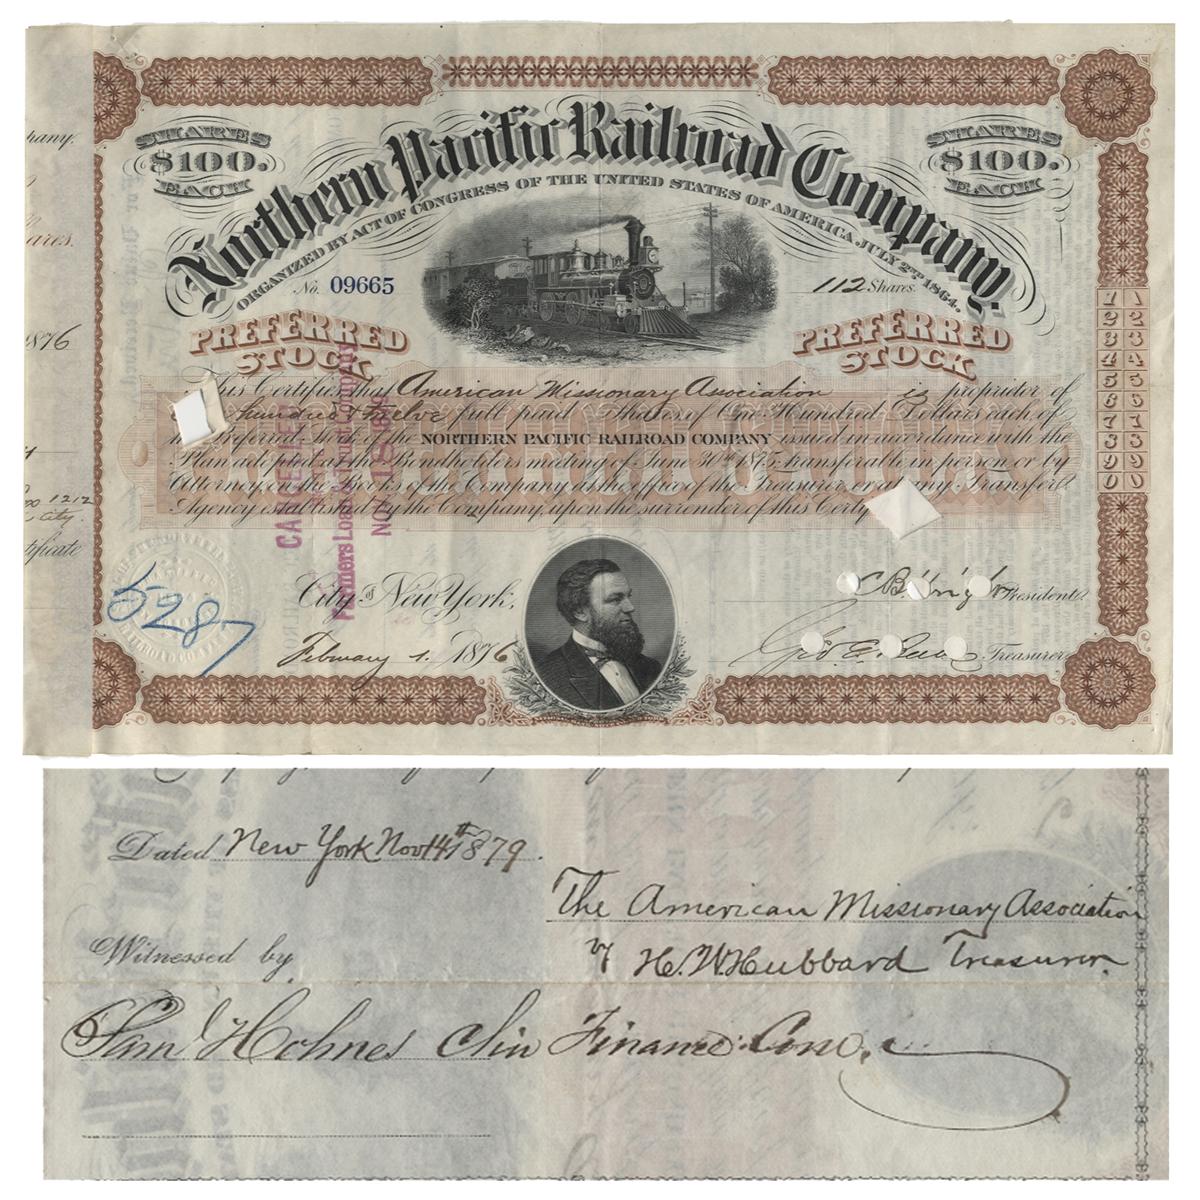 SHARES $100. EACH
Northern Pacific Railroad Company.
SHARES $100. EACH
ORGANIZED BY ACT OF CONGRESS OF THE UNITED STATES OF AMERICA, JULY 2ND 1864.
No. 09665
112 Shares.
PREFERRED STOCK
PREFERRED STOCK
This Certifies that American Missionary Association is proprietor of
hundred & twelve full paid Shares of One Hundred Dollars each of
the Preferred Stock of the NORTHERN PACIFIC RAILROAD COMPANY issued in accordance with the
Plan adopted at the Bondholders meeting of June 30th 1875, transferable in person or by
Attorney on the Books of the Company at the office of the Treasurer, or at any Transfer
Agency established by the Company, upon the surrender of this Certif
CANCELLED
Farmers Loan & Trust Company
NOV 18 1879
City of New York,
February 1. 1876
President
Geo. E. Treasurer
5287
pany.
hares.
1876
1212
City.
tificate
1 1
2 2
3 3
4 4
5 5
6 6
7 7
8 8
9 9
0 0
Dated New York Nov 14th 1879.
The American Missionary Association
Witnessed by
by H. W. Hubbard Treasurer.
Holmes Chn Finance Com.